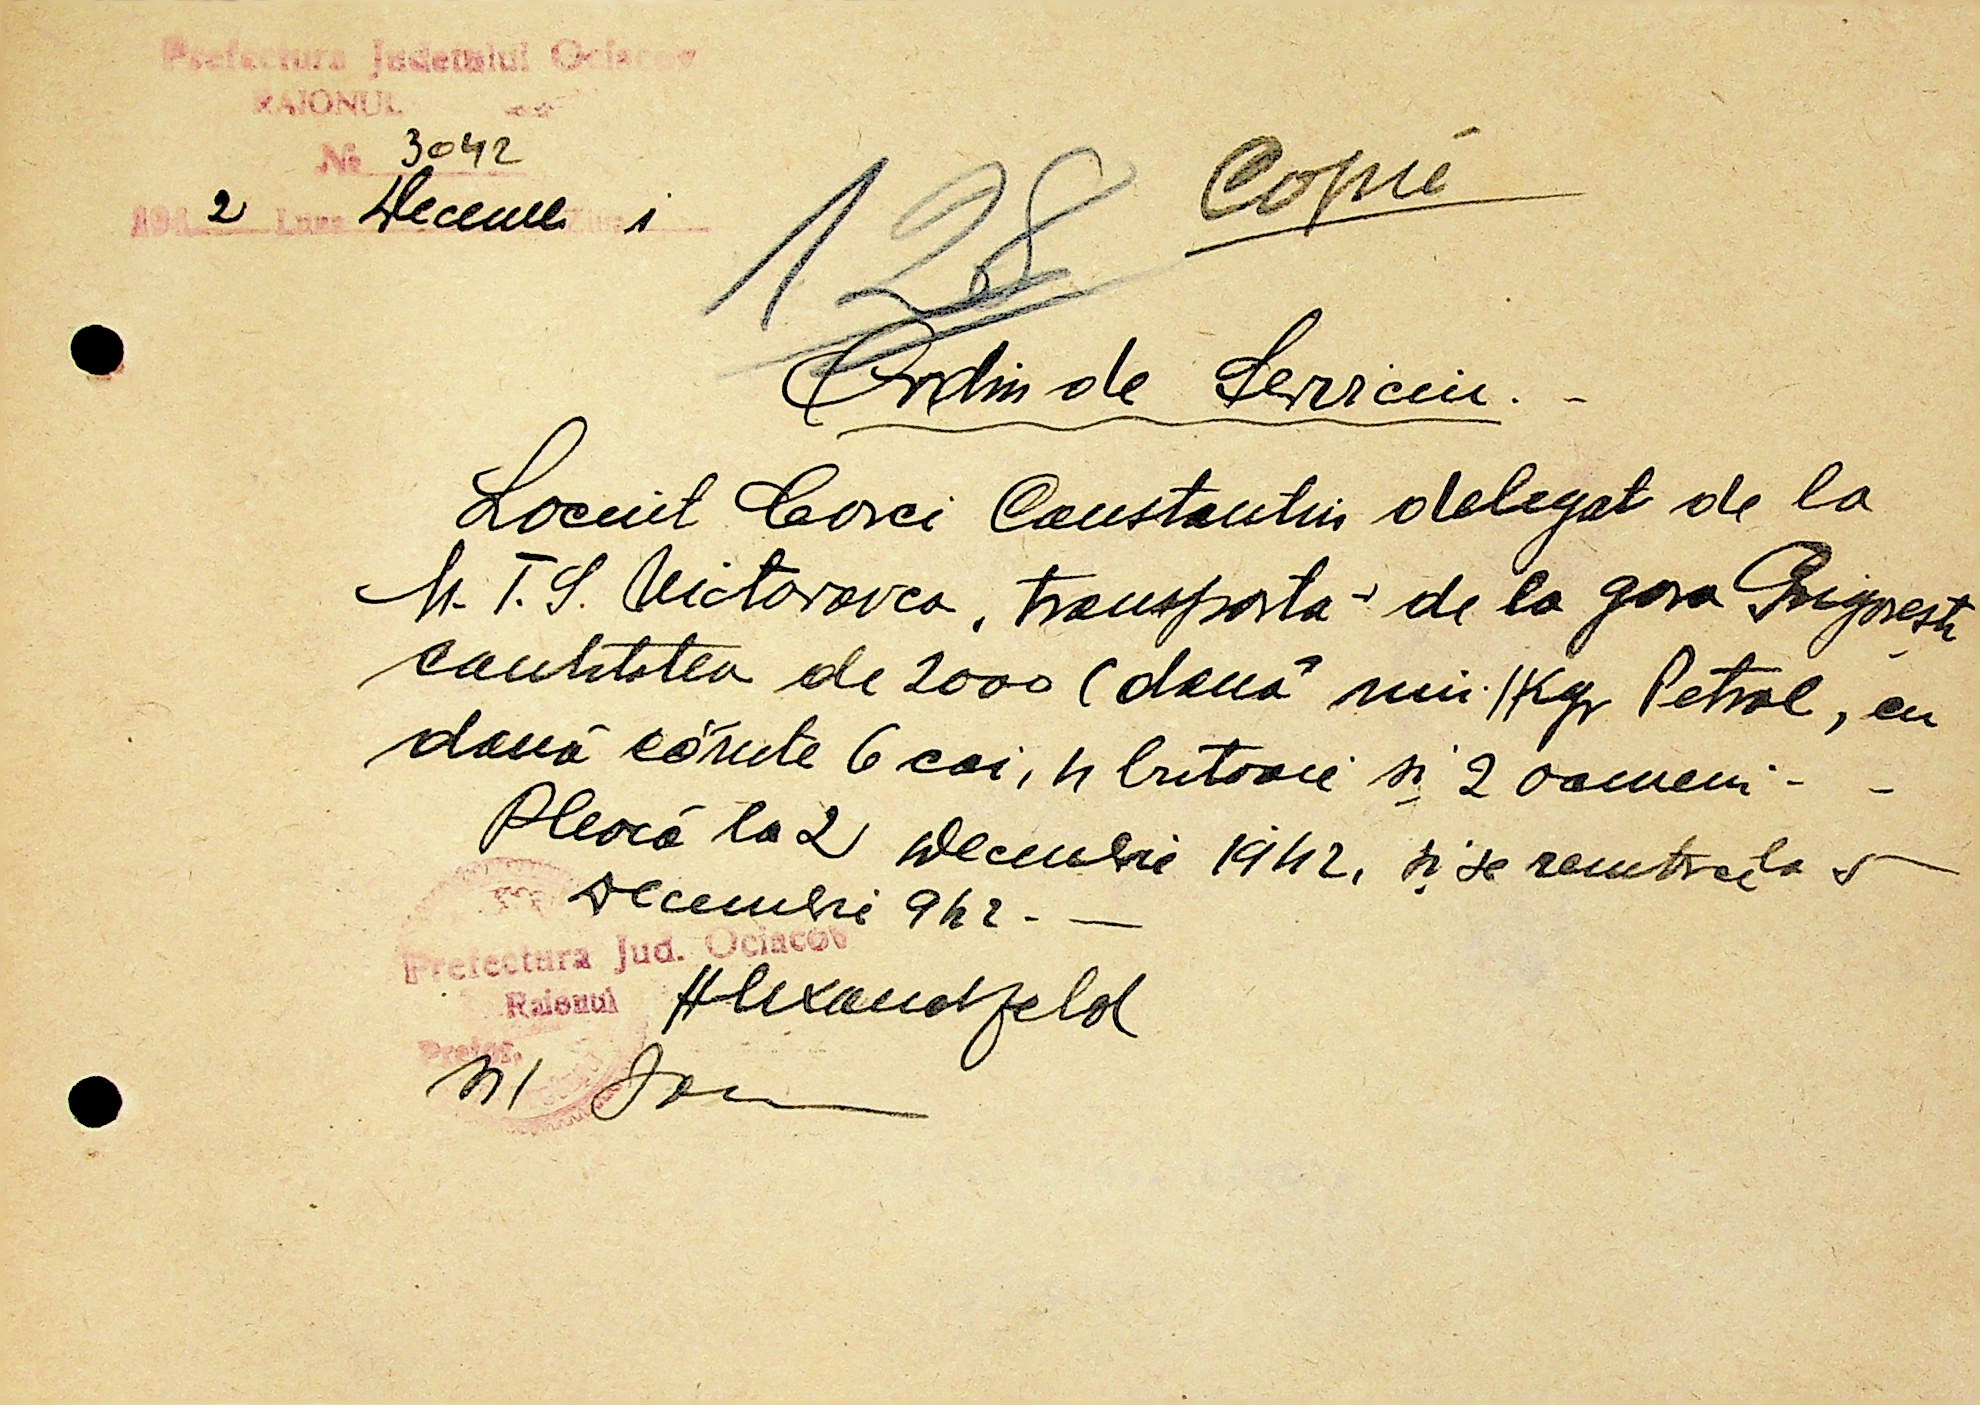 Prefectura Judetului Ociacov
RAIONUL
№ 3042
194 2 Luna Decemb Ziua 1
128
Copie
Ordin de Serviciu. -
Locuit Corci Constantin delegat de la
M.T.S. Victorovca, transportă de la gara Grigorești
cantitatea de 2000 (două mii) Kgr Petrol, cu
două căruțe 6 cai, 4 butoaie și 2 oameni - -
Pleacă la 2 Decembrie 1942, și se reintoarce la 5
Decembrie 942. —
Prefectura Jud. Ociacov
Raionul Alexandfeld
Pretor,